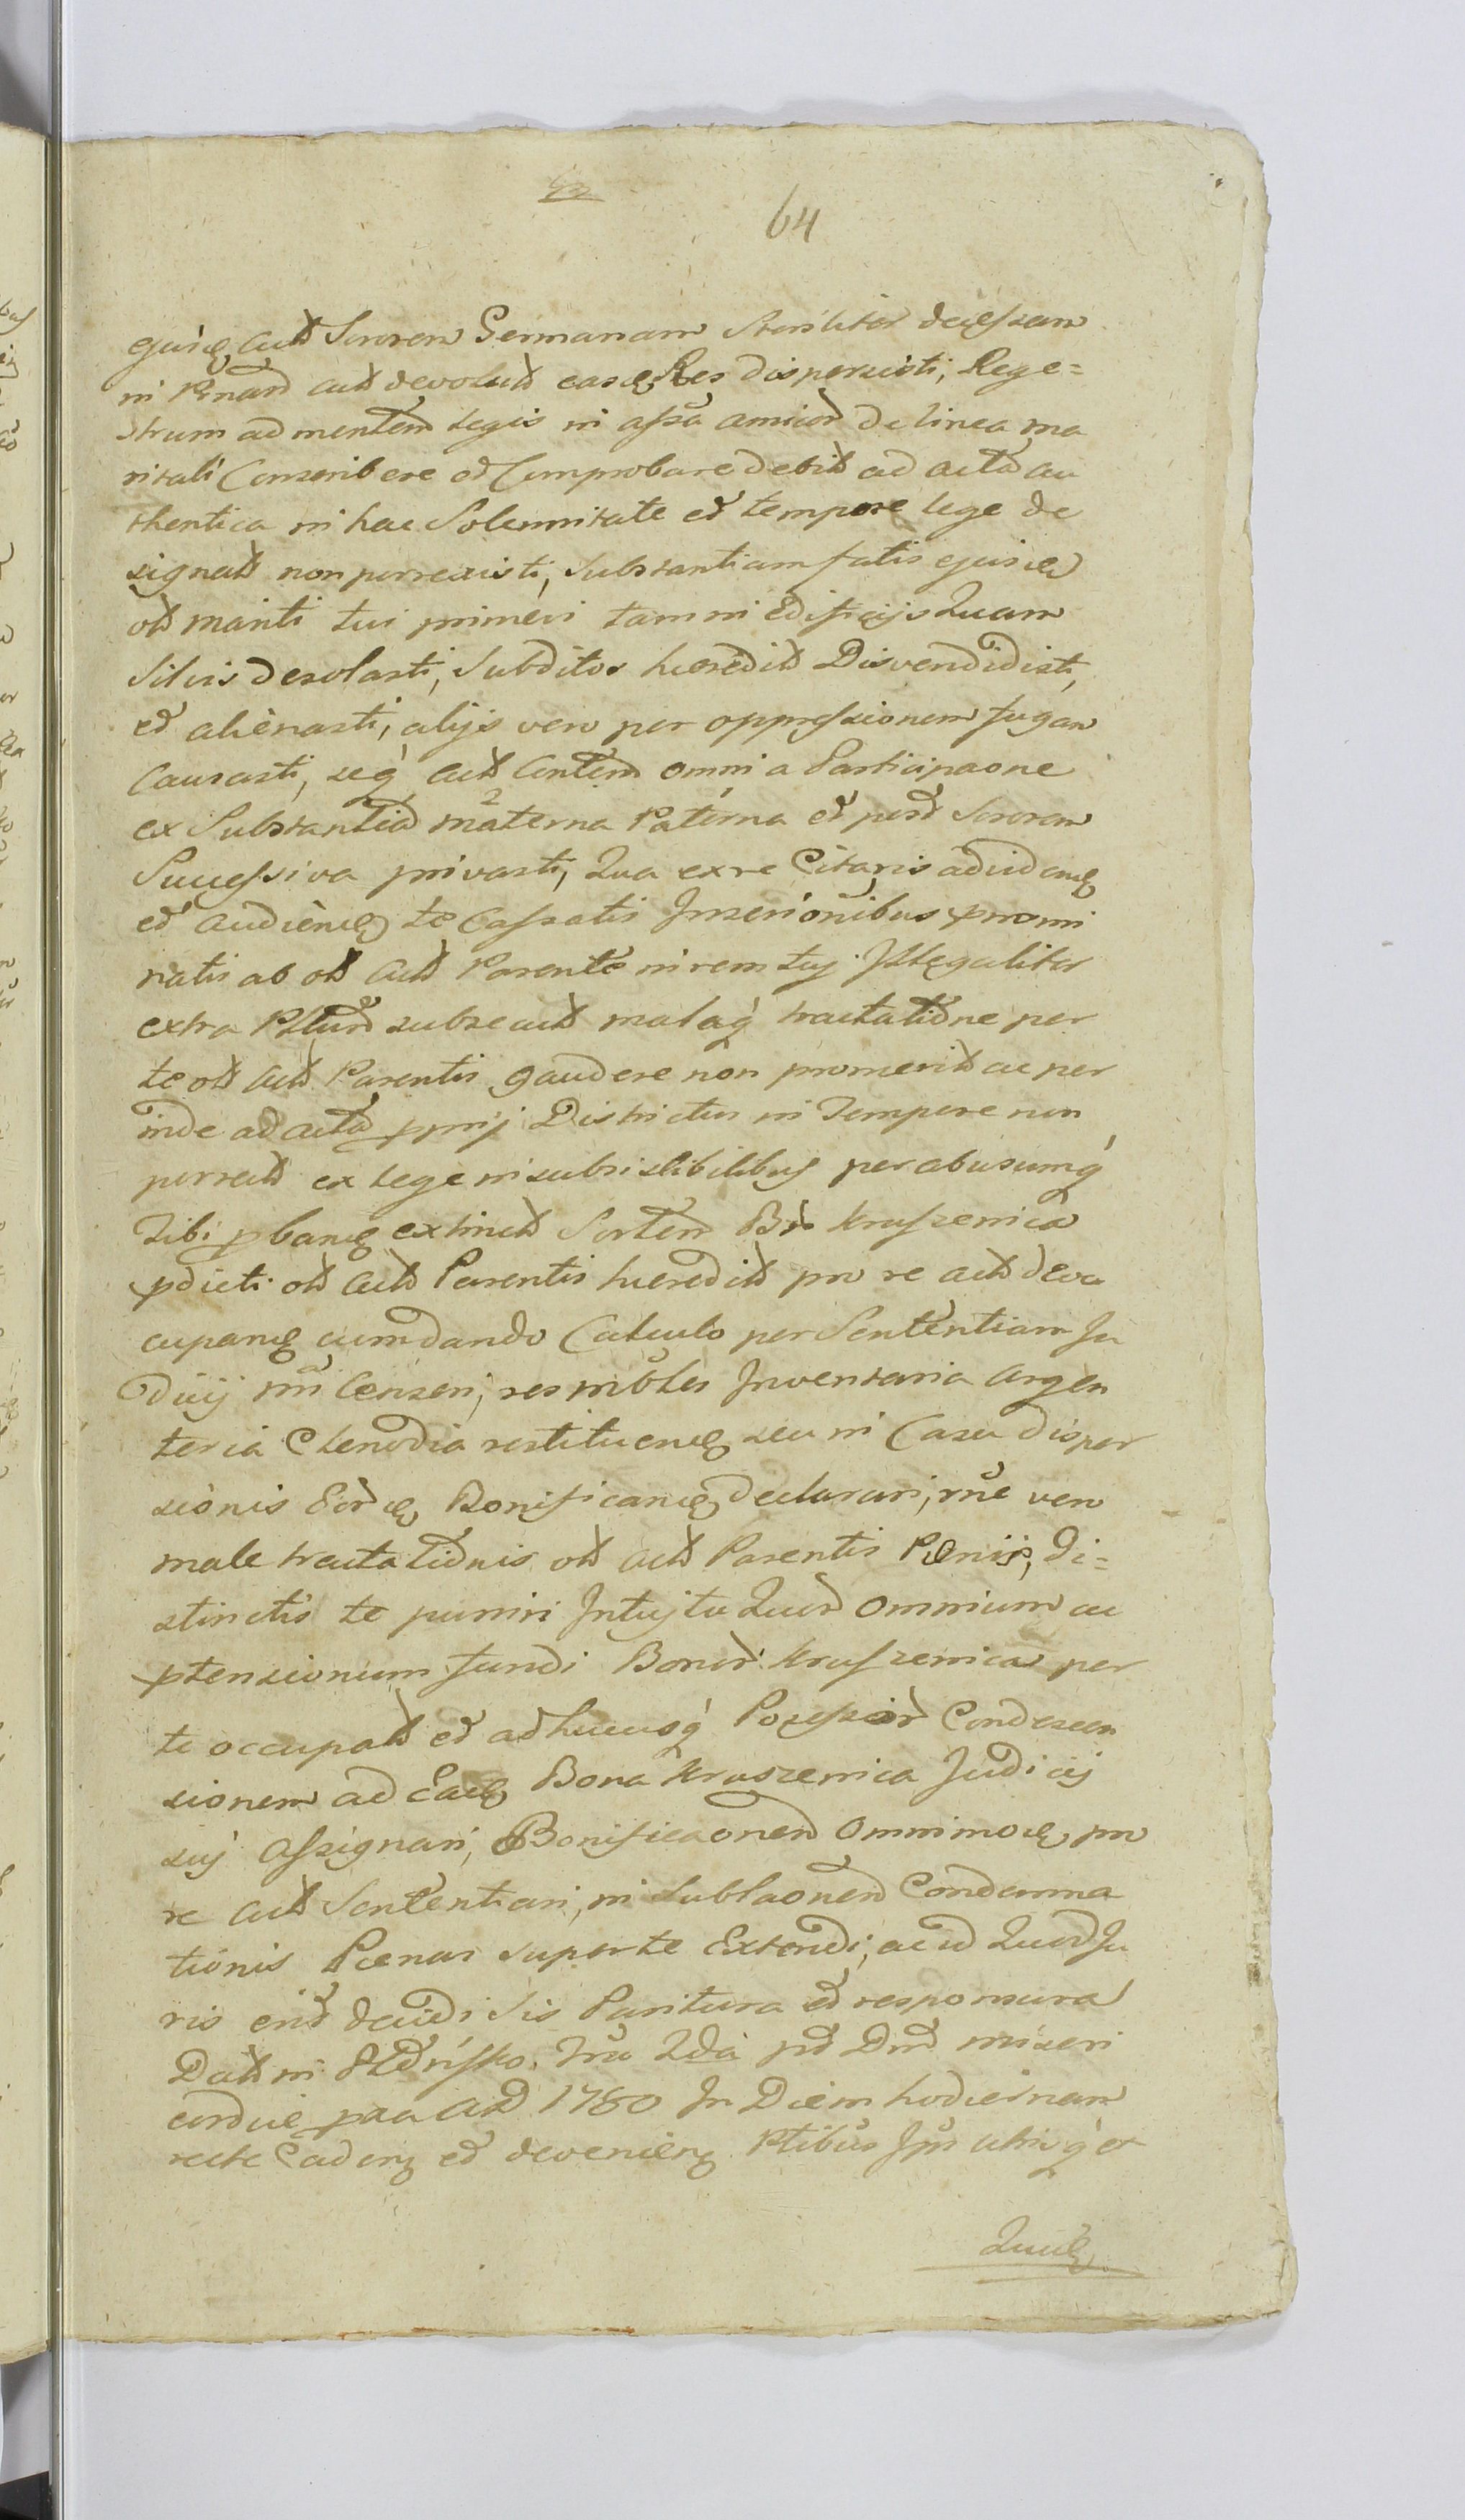 64
ejusq actt Sororem Germanam Steriliter decessam
in Psnam actt devolutt easq Res dispersisti, Rege=
strum ad mentem Legis in assa amicor de linea ma
ritali Conscribere et Comprobare debitt ad acta au
thentica in hac Solennitate et tempore lege de
signatt non porrexisti, Substantiam fatis ejusd
ott mariti tui primevi tam in Edificijs Quam
Silvis desolasti, Subditos hæreditt Disvendidisti,
et alienasti, alijs vero per oppressionem fugam
Causasti, seq actt Contem omni a Participaone
ex Substantia materna Paterna et post Sororem
Successiva privasti, Qua ex re Citaris ad videnq
et audienq te Cassatis Inscrionibus promi
ratis ab ott actt Parente in rem tuj Illegaliter
extra Psturm subsecutt malaq tractatione per
te ott actt Parentis gaudere non promeritt ac per
inde ad acta pprij Districtus in Tempore non
porrectt ex lege insubsistibilibus per abusumq
Tibi pbanq extinctt Sortem Br Kruszenica
pdicti ott actt Parentis hæreditt pro re actt deoc
cupanq cum dando Calculo per Sententiam Ju
dicij nri Censeri, res mobles Inventaria argen
teria Clenodia restituenq seu in Casu disper
sionis Eorq Bonificanq declarari, rne vero
male tractationis ott actt Parentis Pœnis, di=
stinctis te puniri Intuitu Quor Omnium ac
ptensionum fundi Bonor Kruszenica per
te occupatt et adhucusq Possessor Condescen
sionem ad Eadq Bona Kruszenica Judicij
sui Assignari, Bonificaonem Omnimodq pro
re actt Sententiari, in Sublaonem Condemna
tionis Pœnas super te Extendi, ac id Quod Ju
ris erit decidi Sis Paritura et responsura
Datt in Fra 2da pt Dnm miseri
cordiæ pxa AD 1780 In Diem hodiernam
recte Caden et devenien Ptibus Ipsi utriq et
Quidq